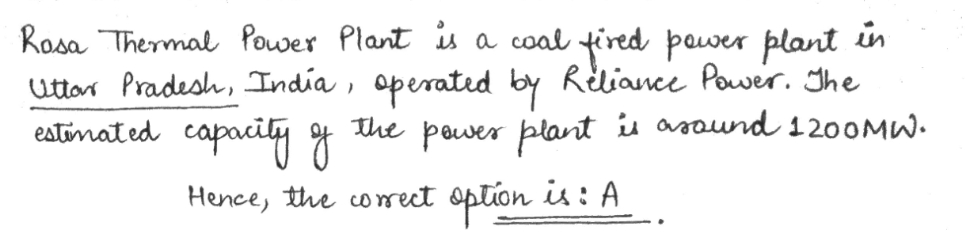 Rosa Thermal Power Plant is a coal fired power plant in
Uttar Pradesh, India, operated by Reliance Power. The
estimated capacity of the power plant is around 1200MW.
Hence, the correct option is : A.